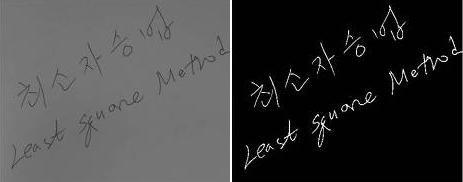 최소자승법
Least Square Method
최소자승법
Least Square Method